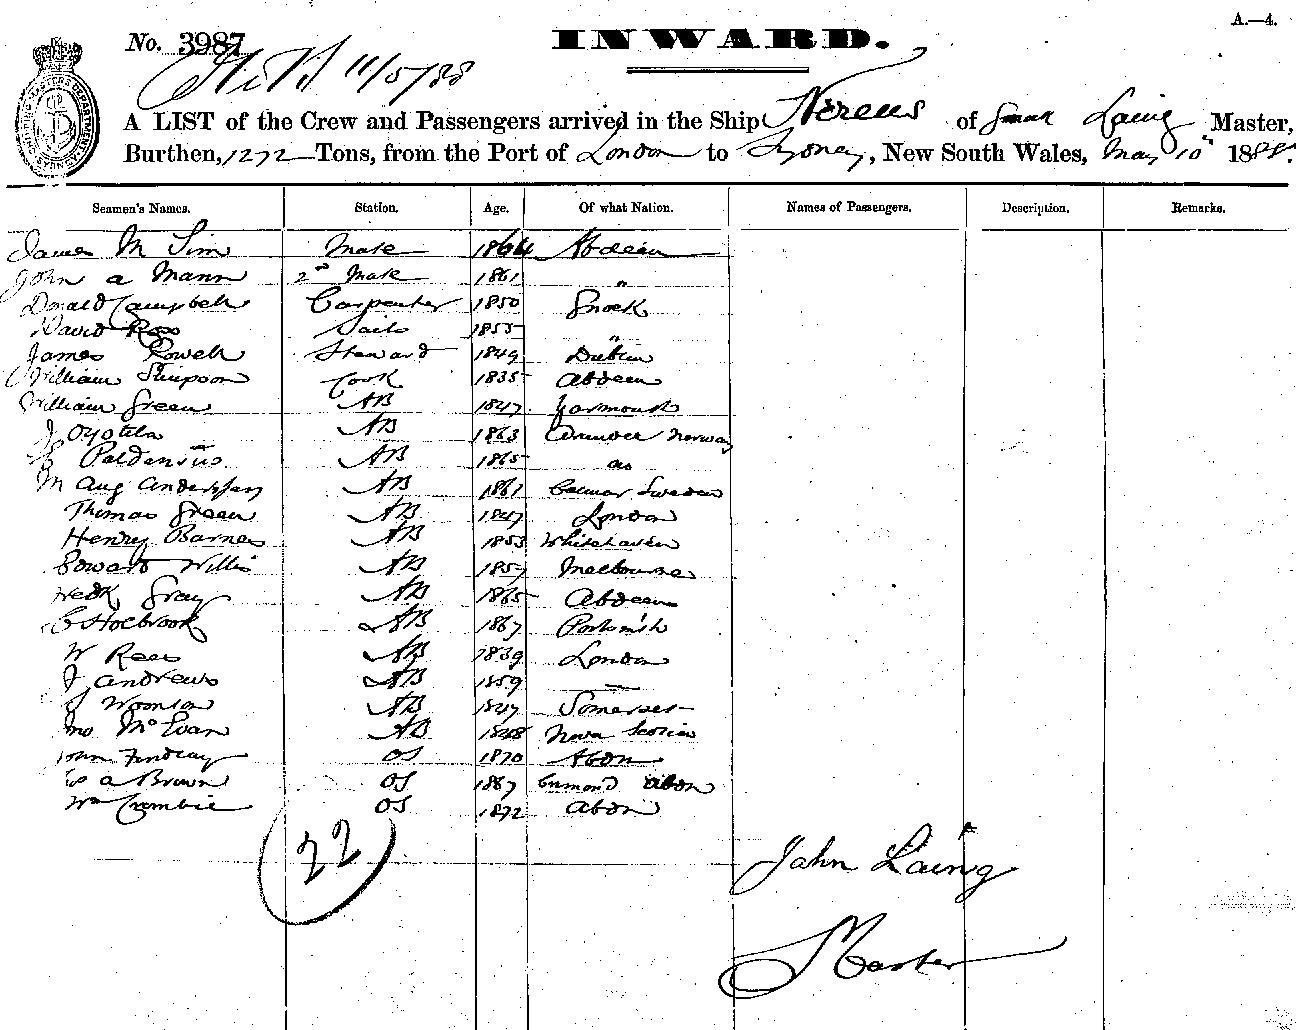 A.—4.
No. 3987
INWARD.
11/5/88
A LIST of the Crew and Passengers arrived in the Ship Nereus of Laing Master,
Burthen, 1272 Tons, from the Port of London to Sydney, New South Wales, May 10th 1888.
Seamen's Names. Station. Age. Of what Nation. Names of Passengers. Description. Remarks.
James M Sim Mate 1864 Abdeen
John a Mann 2nd Mate 1861 "
Donald Campbell Carpenter 1850
David Ross Sails 1855 "
James Powell Steward 1849 Dublin
William Simpson Cook 1835 Abdeen
William Green AB 1847 Yarmouth
J AB 1863 Norway
AB 1865 do
M Aug Anderssen AB 1861 Sweden
Thomas Green AB 1847 London
Henry Barnes AB 1853 Whitehaven
Edward Willis AB 1857 Melbourne
Fredk Gray AB 1865 Abdeen
C Holbrook AB 1867 Portsmth
W Rees AB 1839 London
J Andrews AB 1859
J AB 1847 Somerset
Jno McEvan AB 1848 Nova Scotia
John Findlay OS 1870 Abdn
a Brown OS 1867 Abdn
Wm Crombie OS 1872 Abdn
22
John Laing
Master